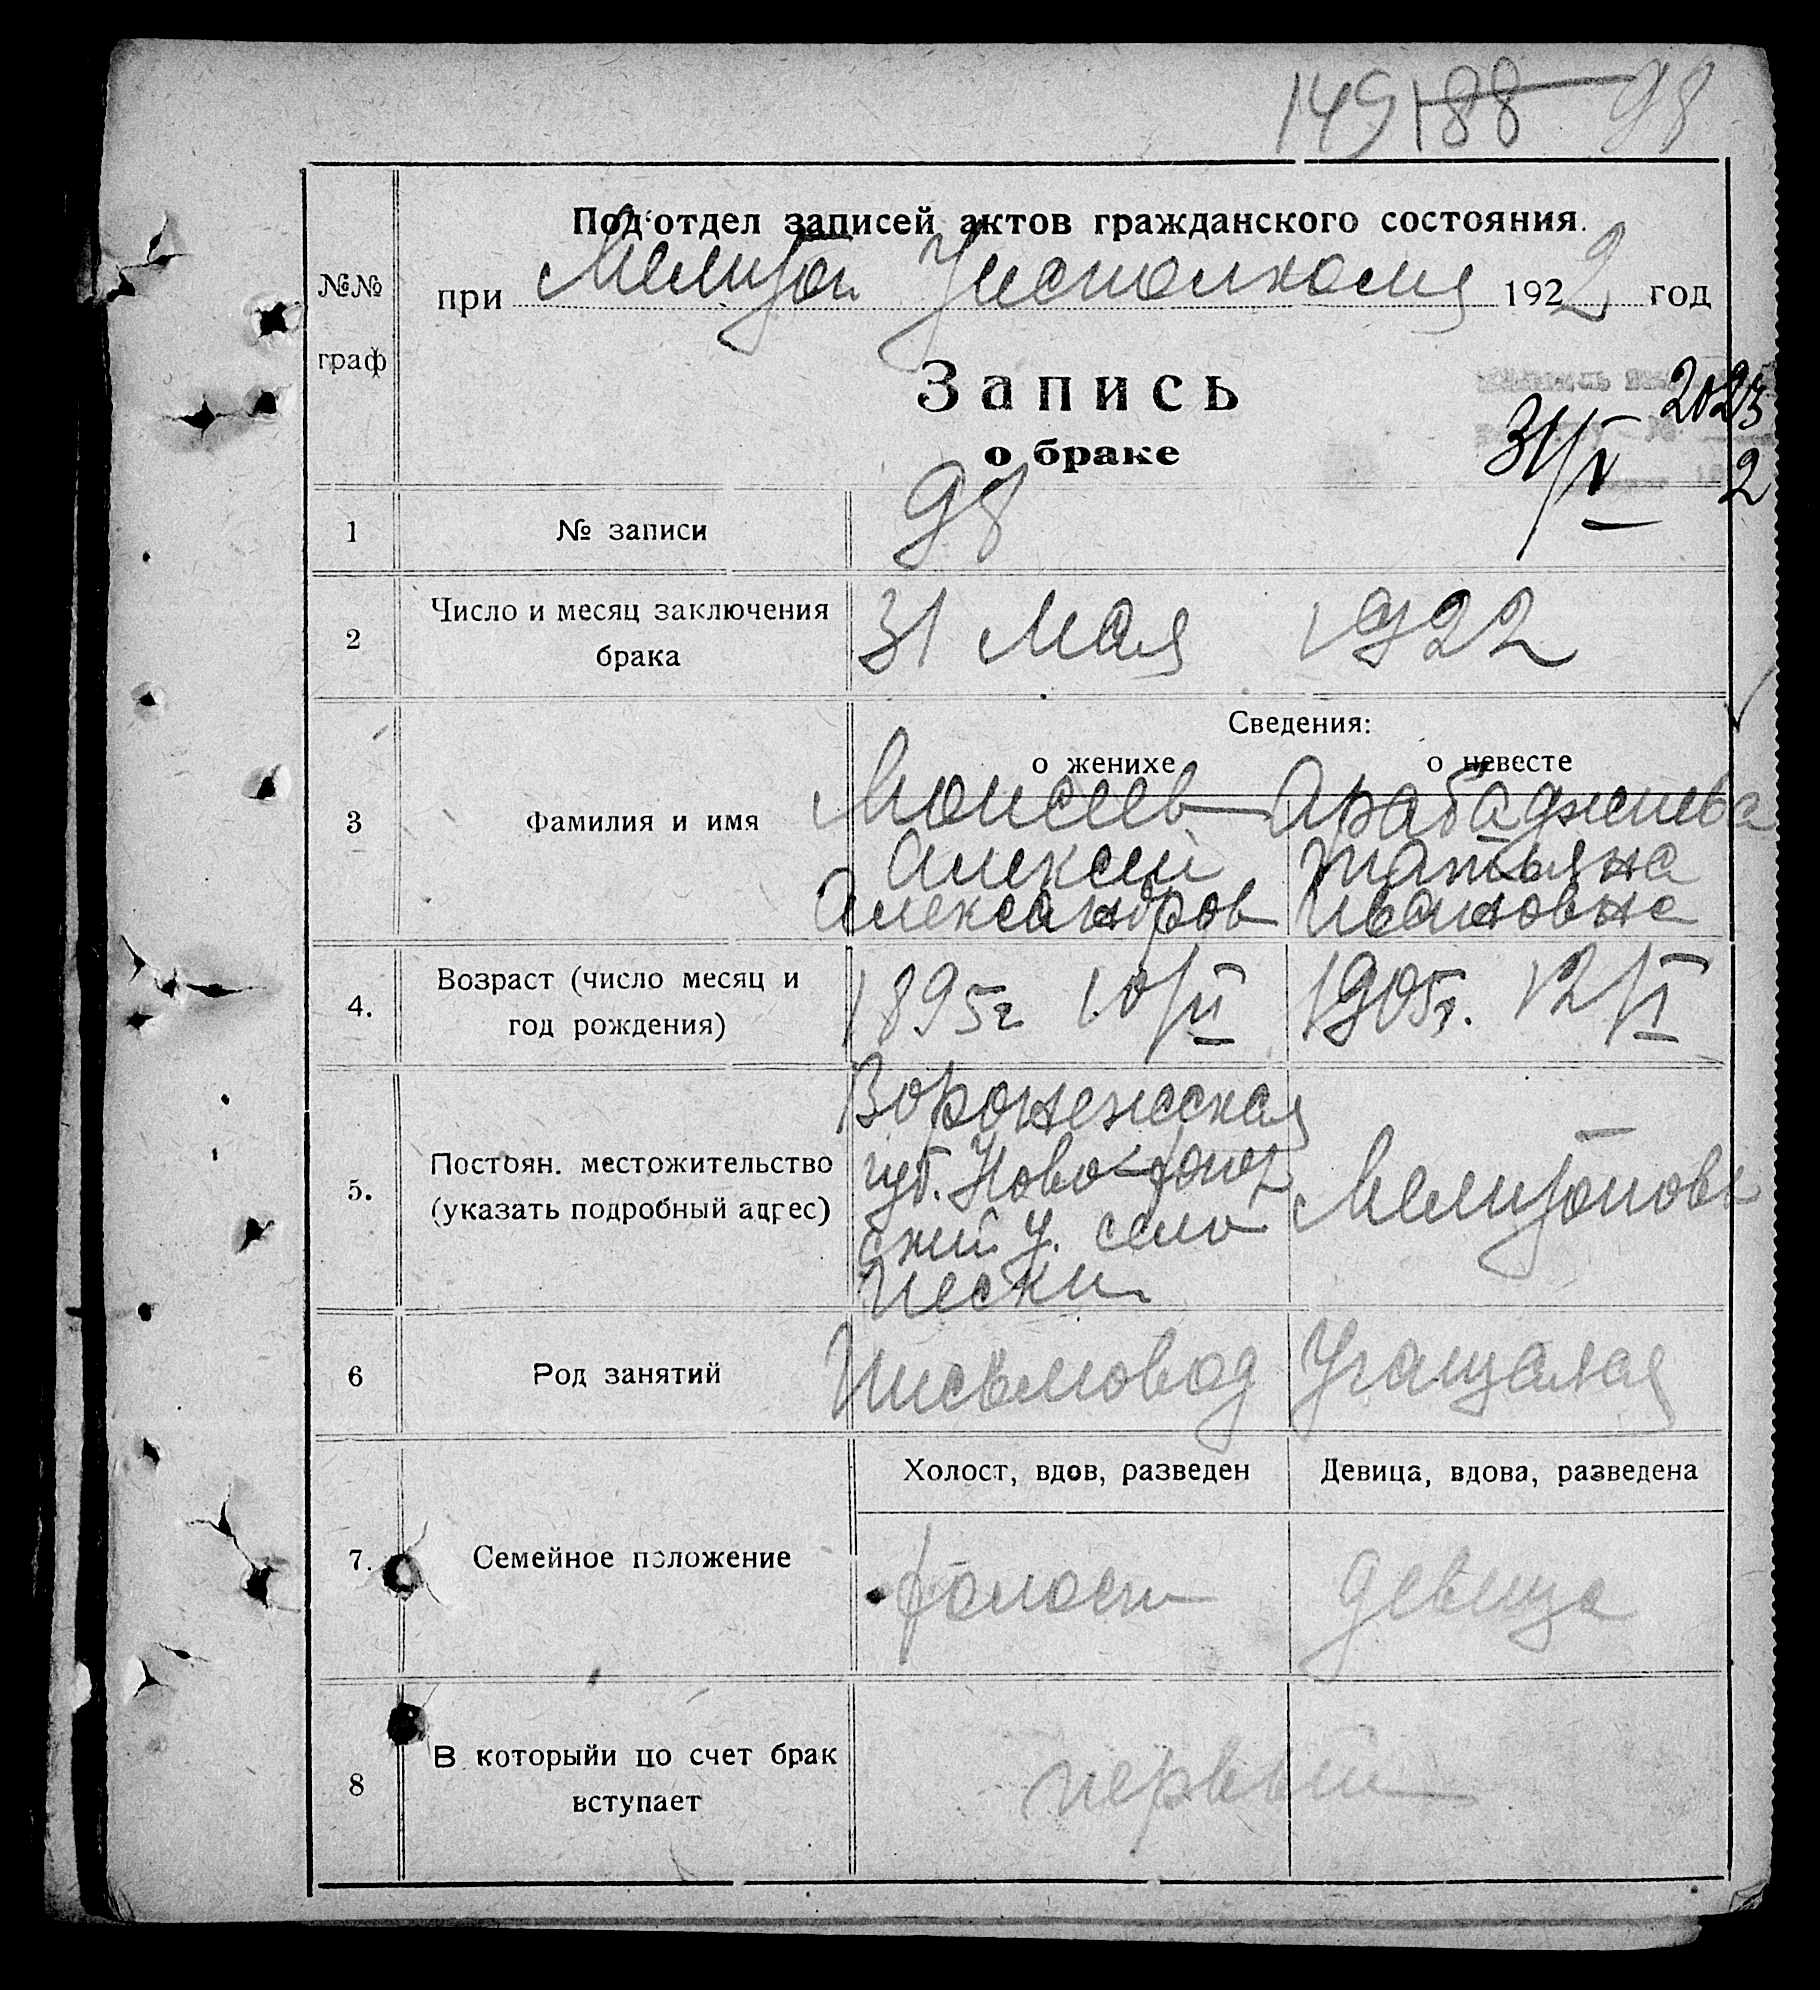 149 188 98
Под'отдел записей актов гражданского состояния.
№№ граф
при Мелитоп. Уисполкома 1922 год
Запись
о браке
2023
31/V 2
1 № записи 98
2 Число и месяц заключения брака 31 Мая 1922
Сведения:
о женихе о невесте
3 Фамилия и имя Моисеев Арабаджиева
Алексей Татьяна
Александров Ивановна
4. Возраст (число месяц и год рождения) 1895г 10/II 1905г. 12/I
5. Постоян. местожительство (указать подробный адрес) Воронежская
губ. Ново-хопер
ский у. село Мелитополь
Пески
6 Род занятий Письмовод Учащаяся
Холост, вдов, разведен Девица, вдова, разведена
7. Семейное положение холост девица
8 В которыйи по счет брак вступает первый